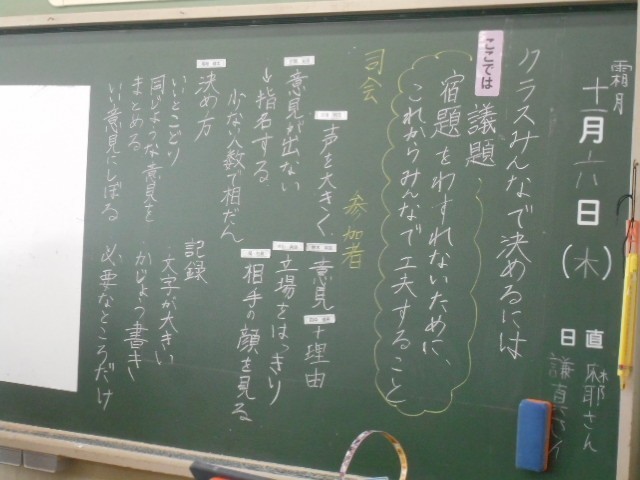 霜月
十一月六日(木)
日直
麻耶さん
謙直さん
クラスみんなで決めるには
ここでは
議題
宿題をわすれないために、
これからみんなで工夫すること
司会
声を大きく
意見が出ない
→指名する
少ない人数で相だん
決め方
いいとこどり
同じような意見を
まとめる
いい意見にしぼる
参加者
意見+理由
立場をはっきり
相手の顔を見る
記録
・文字が大きい
・かじょう書き
必要なところだけ